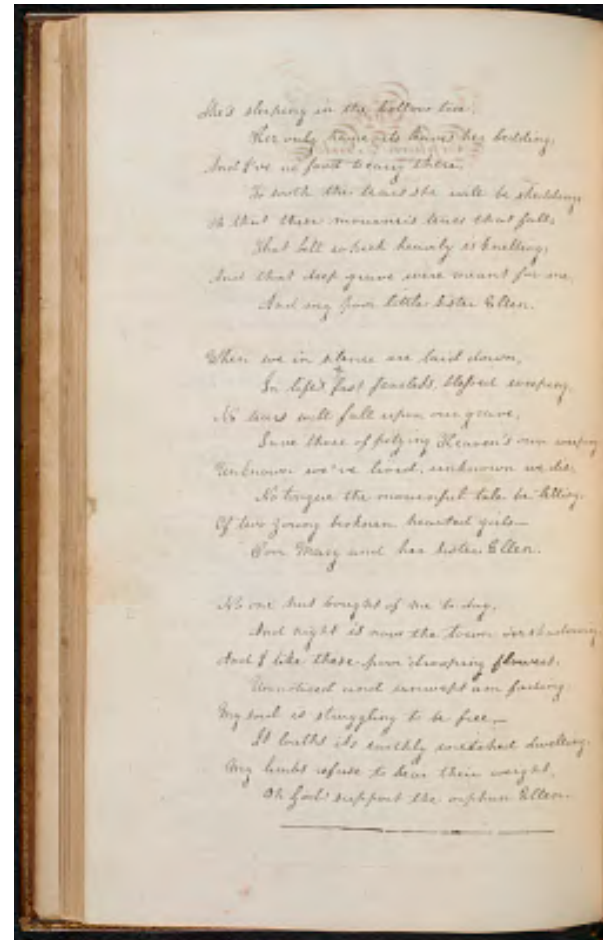 She's sleeping in the hollow tree,
Her only home its leaves her bedding,
And I've no food to carry there,
To sooth the tears she will be shedding
Oh that those mourner's tears that fall,
That bell which heavily is knelling,
And that deep grave were meant for me,
And my poor little sister Ellen.

When we in silence are laid down,
In life's last fearless, blessed sleeping,
No tears will fall upon our grave,
Save those of pitying Heaven's own weeping
Unknown we've lived, unknown we die,
No tongue the mournful tale be telling,
Of two young broken, hearted girls—
Poor Mary and her sister Ellen.

No one has bought of me to day,
And night is now the town o'ershadowing
And I like these poor drooping flowers,
Unnoticed and unwept am fading.
My soul is struggling to be free—
It loaths its earthly wretched dwelling,
My limbs refuse to bear their weight,
Oh God! support the orphan Ellen.